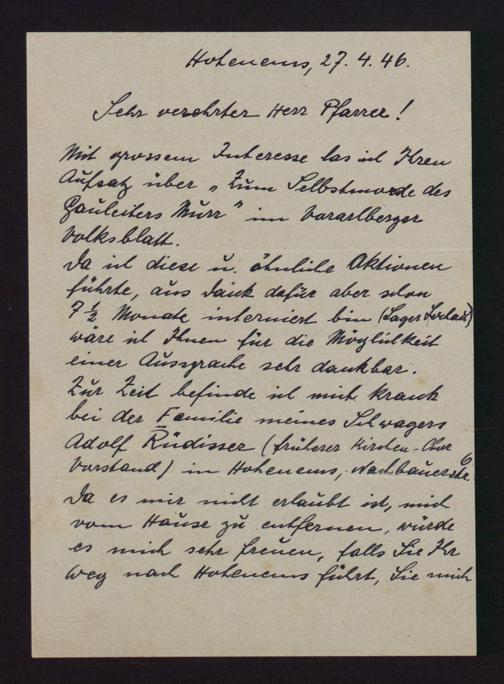 Hohenems, 27. 4. 46.
Sehr verehrter Herr Pfarrer!
Mit grossem Interesse las ich Ihren
Aufsatz über „Zum Selbstmorde des
Gauleiters Murr" im Vorarlberger
Volksblatt.
Da ich diese u. ähnliche Aktionen
führte, aus Dank dafür aber schon
7 ½ Monate interniert bin (Lager
wäre ich Ihnen für die Möglichkeit
einer Aussprache sehr dankbar.
Zur Zeit befinde ich mich krank
bei der Familie meines Schwagers
Adolf Rüdisser (früherer Kirchen-Chor
Vorstand) in Hohenems, Nachbauerstr. 6
Da es mir nicht erlaubt ist, mich
vom Hause zu entfernen, würde
es mich sehr freuen, falls Sie Ihr
Weg nach Hohenems führt, Sie mich